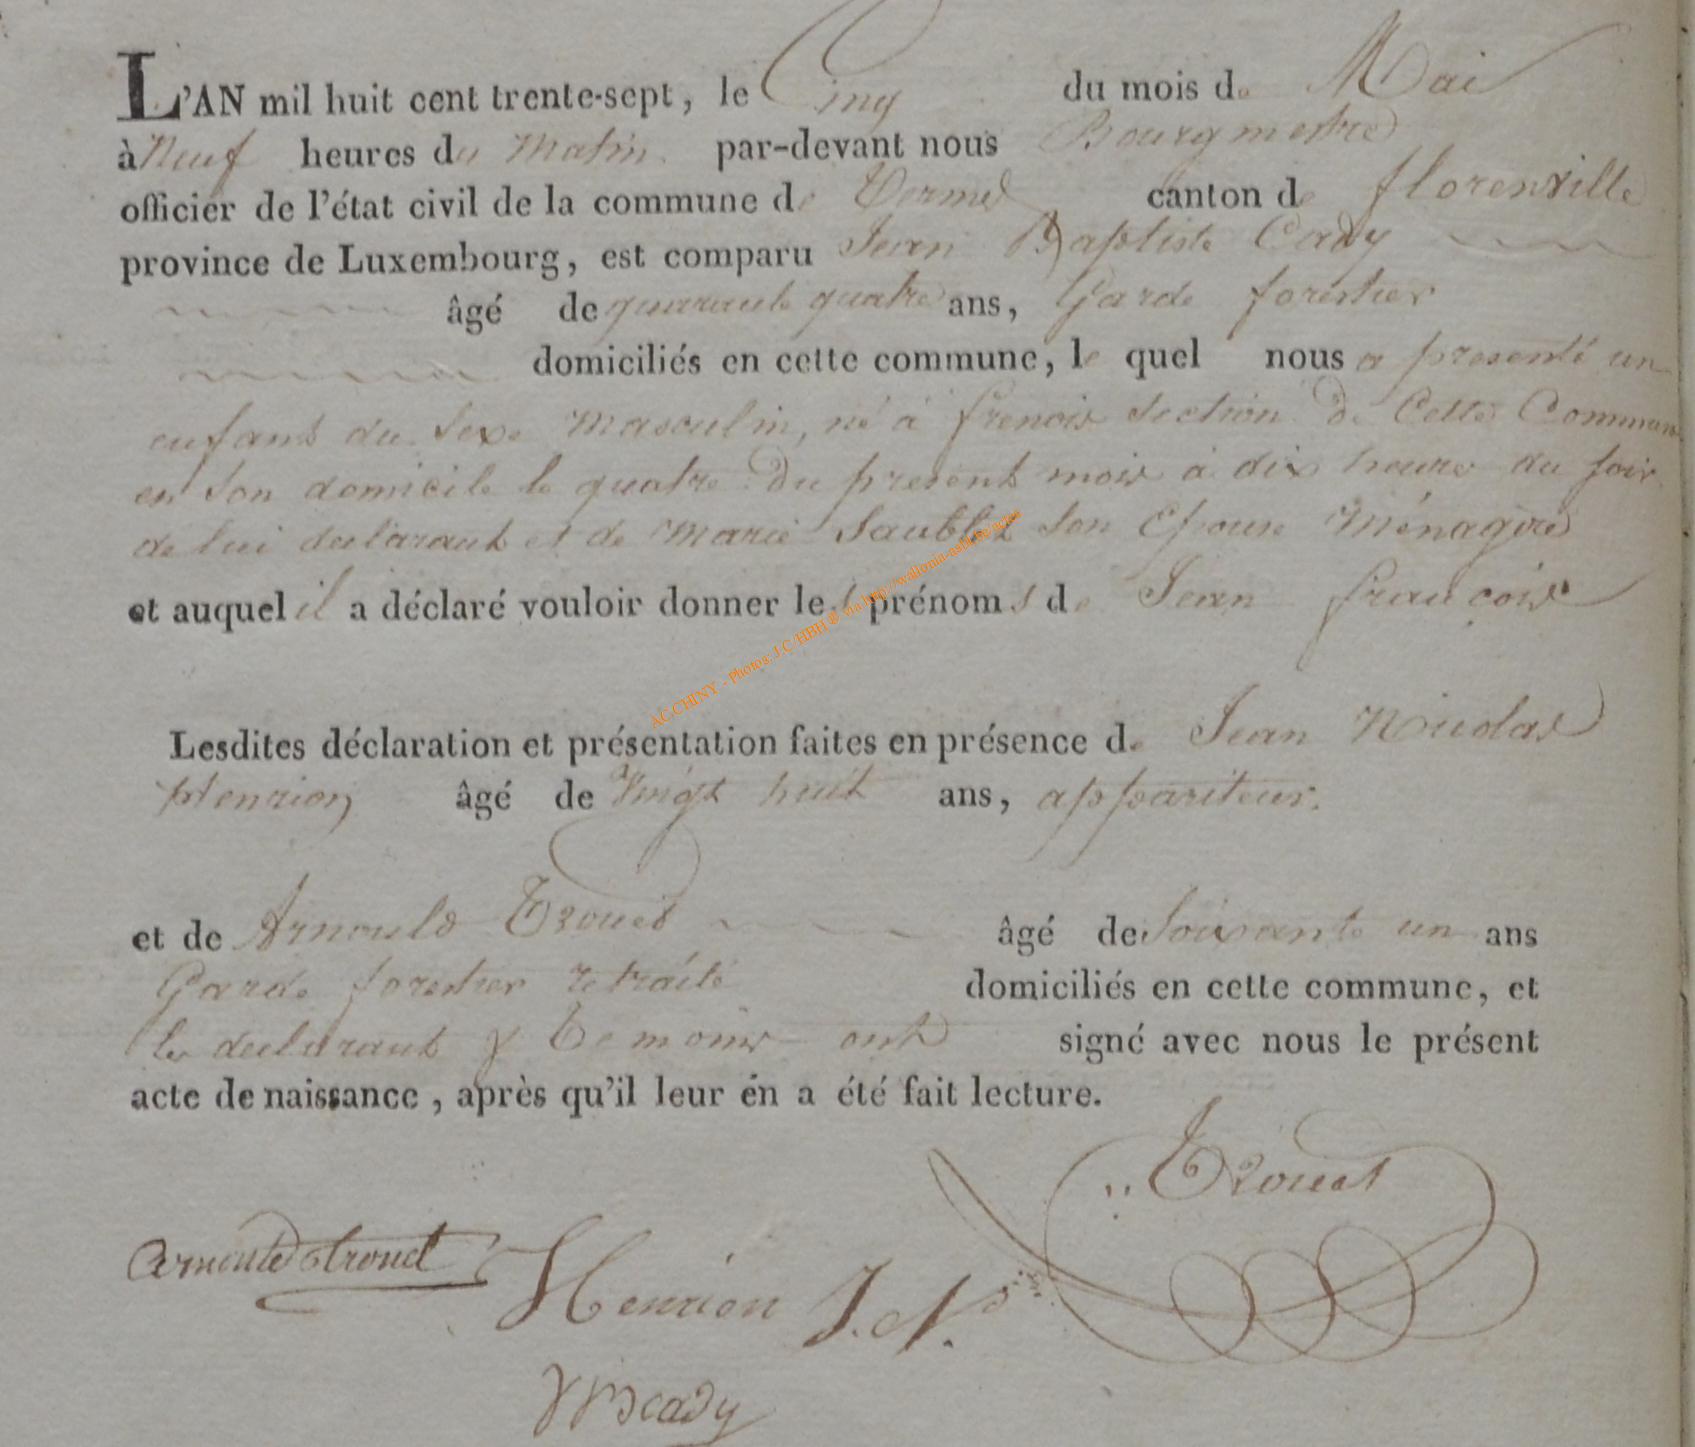 L'AN mil huit cent trente-sept, le Cinq du mois de Mai
à Neuf heures du Matin par-devant nous Bourgmestre
officier de l'état civil de la commune de Termes canton de florenville
province de Luxembourg, est comparu Jean Baptiste Cady
âgé de quarante quatre ans, Garde forestier
domiciliés en cette commune, le quel nous a presenté un
enfant du Sexe Masculin, né à frenois Section de Cette Commune
en Son domicile le quatre du present mois à dix heures du Soir
de lui declarant et de Marie Saublet Son Epouse Ménagère
et auquel il a déclaré vouloir donner les prénoms de Jean françois
AC.CHINY - Photos: J.C HBH @ via http://wallonia-asbl.be/actes
Lesdites déclaration et présentation faites en présence de Jean Nicolas
Henrion âgé de Vingt huit ans, appariteur.
et de Arnould Trouet âgé de Soixante un ans
Garde forestier retraité domiciliés en cette commune, et
les declarant & Temoins ont signé avec nous le présent
acte de naissance, après qu'il leur en a été fait lecture.
Trouet
Arnould trouet
Henrion J.N.
JB cady